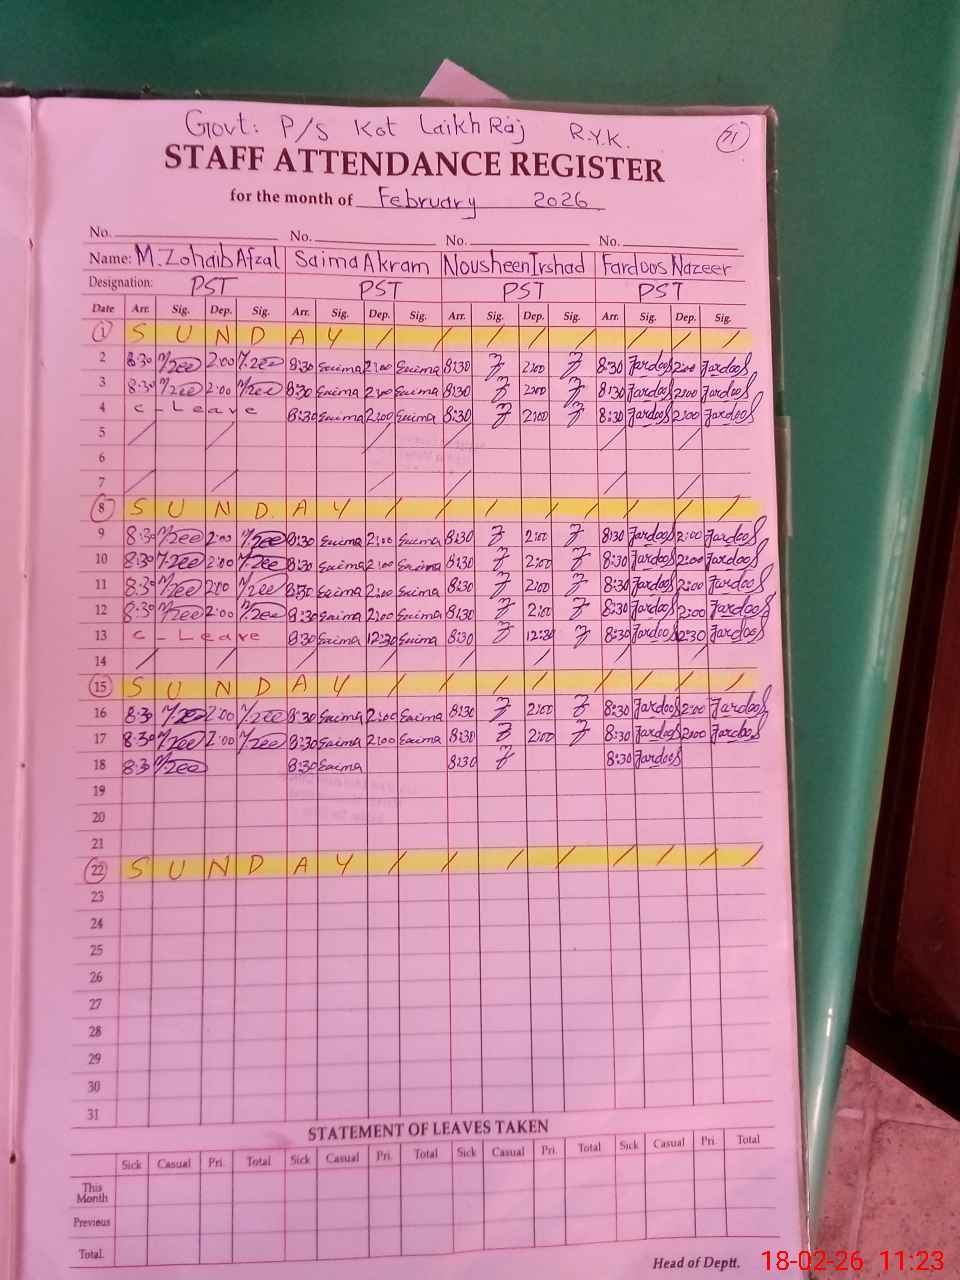 Govt: P/S Kot Laikh Raj R.Y.K. 71
STAFF ATTENDANCE REGISTER
for the month of February 2026
No. No. No. No.
Name: M.Zohaib Afzal Saima Akram Nousheen Irshad Fardoos Nazeer
Designation: PST PST PST PST
Date Arr. Sig. Dep. Sig. Arr. Sig. Dep. Sig. Arr. Sig. Dep. Sig. Arr. Sig. Dep. Sig.
1 S U N D A Y / / / / / / / / / /
2 8:30 2:00 8:30 Saima 2:00 Saima 8:30 2:00 8:30 Fardoos 2:00 Fardoos
3 8:30 2:00 8:30 Saima 2:00 Saima 8:30 2:00 8:30 Fardoos 2:00 Fardoos
4 C - Leave 8:30 Saima 2:00 Saima 8:30 2:00 8:30 Fardoos 2:00 Fardoos
5 / / / / / /
6
7 / / / / / /
8 S U N D A Y / / / / / / / / / /
9 8:30 2:00 8:30 Saima 2:00 Saima 8:30 2:00 8:30 Fardoos 2:00 Fardoos
10 8:30 2:00 8:30 Saima 2:00 Saima 8:30 2:00 8:30 Fardoos 2:00 Fardoos
11 8:30 2:00 8:30 Saima 2:00 Saima 8:30 2:00 8:30 Fardoos 2:00 Fardoos
12 8:30 2:00 8:30 Saima 2:00 Saima 8:30 2:00 8:30 Fardoos 2:00 Fardoos
13 C - Leave 8:30 Saima 12:30 Saima 8:30 12:30 8:30 Fardoos 12:30 Fardoos
14 / / / / / / / /
15 S U N D A Y / / / / / / / / / /
16 8:30 2:00 8:30 Saima 2:00 Saima 8:30 2:00 8:30 Fardoos 2:00 Fardoos
17 8:30 2:00 8:30 Saima 2:00 Saima 8:30 2:00 8:30 Fardoos 2:00 Fardoos
18 8:30 8:30 Saima 8:30 8:30 Fardoos
19
20
21
22 S U N D A Y / / / / / / / / /
23
24
25
26
27
28
29
30
31
STATEMENT OF LEAVES TAKEN
Sick Casual Pri. Total Sick Casual Pri. Total Sick Casual Pri. Total Sick Casual Pri. Total
This Month
Previous
Total.
Head of Deptt.
18-02-26 11:23